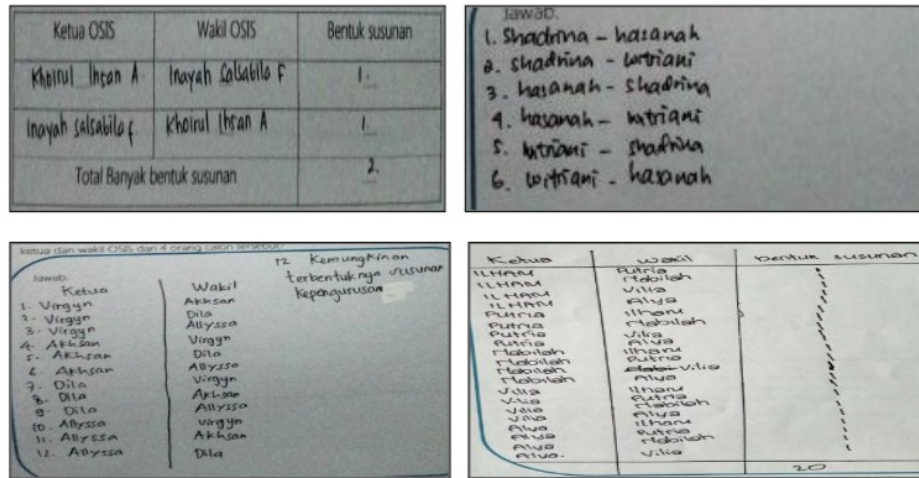 Ketua OSIS Wakil OSIS Bentuk susunan
Khoirul Ihsan A. Inayah Salsabila F 1.
Inayah Salsabila F. Khoirul Ihsan A 1.
Total Banyak bentuk susunan 2.
Jawab:
1. Shadrina - hasanah
2. shadrina - witriani
3. hasanah - shadrina
4. hasanah - witriani
5. witriani - shadrina
6. witriani - hasanah
ketua dan wakil OSIS dari 4 orang calon tersebut?
Jawab:
Ketua Wakil
1. Virgyn Akhsan
2. Virgyn Dila
3. Virgyn Allyssa
4. Akhsan Virgyn
5. Akhsan Dila
6. Akhsan Allyssa
7. Dila Virgyn
8. Dila Akhsan
9. Dila Allyssa
10. Allyssa Virgyn
11. Allyssa Akhsan
12. Allyssa Dila
12 Kemungkinan
terbentuknya susunan
Kepengurusan
Ketua Wakil bentuk susunan
ILHAM Putria
ILHAM Nabilah
ILHAM Vilia
ILHAM Alya
Putria Ilham
Putria Nabilah
Putria Vilia
Putria Alya
Nabilah Ilham
Nabilah Putria
Nabilah Vilia
Nabilah Alya
Vilia Ilham
Vilia Putria
Vilia Nabilah
Vilia Alya
Alya Ilham
Alya Putria
Alya Nabilah
Alya. Vilia
20